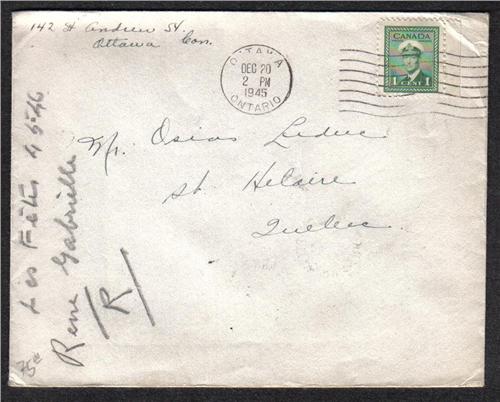 142 St Andrew St.
Ottawa Can.
OTTAWA
DEC 20
2 PM
1945
ONTARIO
CANADA
1 CENT 1
Mr. Osias Leduc
St. Hilaire
Quebec
Les Fêtes 45-46
Rene Gabrielle
R
75¢